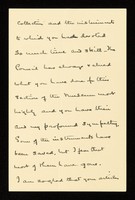 Collection and the instruments
to which you have devoted
so much time and skill. The
Council has always valued
what you have done for this
Section of the Museum most
highly and you have their
and my profound sympathy.
Some of the instruments have
been saved, but I fear that
most of them have gone.
I am delighted that you